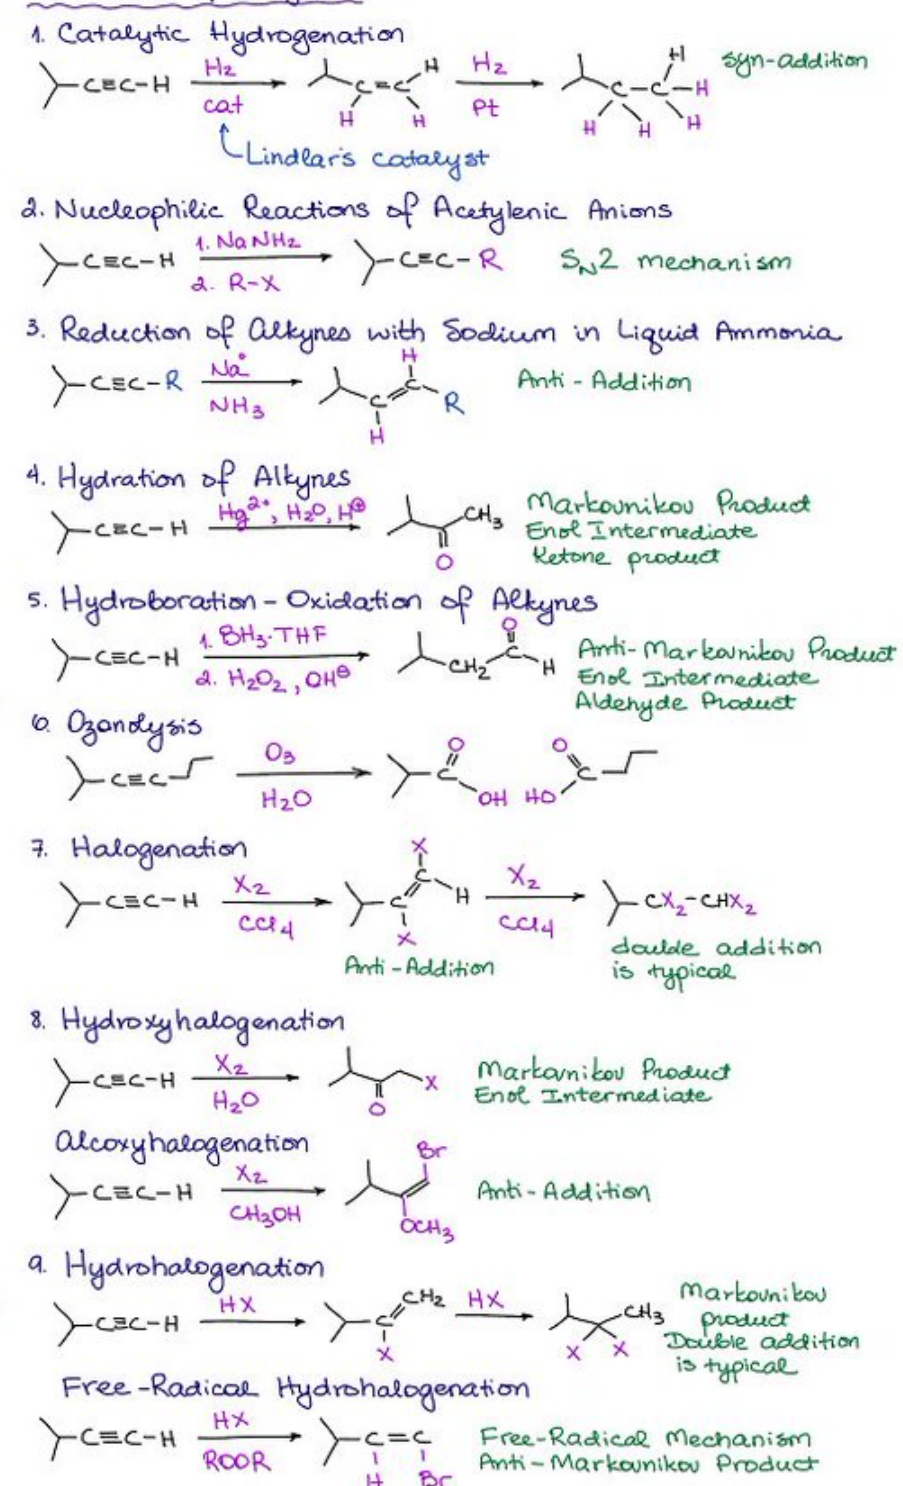 1. Catalytic Hydrogenation
C≡C-H H₂ cat C=C H H H H₂ Pt C-C H H H H H syn-addition
Lindlar's catalyst
2. Nucleophilic Reactions of Acetylenic Anions
C≡C-H 1. NaNH₂ 2. R-X C≡C-R SN2 mechanism
3. Reduction of Alkynes with Sodium in Liquid Ammonia
C≡C-R Na° NH₃ H C C R H Anti-Addition
4. Hydration of Alkynes
C≡C-H Hg²⁺, H₂O, H⊕ CH₃ O Markovnikov Product
Enol Intermediate
Ketone product
5. Hydroboration-Oxidation of Alkynes
C≡C-H 1. BH₃·THF 2. H₂O₂, OH⊖ CH₂ C O H Anti-Markovnikov Product
Enol Intermediate
Aldehyde Product
6. Ozonolysis
C≡C O₃ H₂O O C OH HO O C
7. Halogenation
C≡C-H X₂ CCl₄ X C C H X X₂ CCl₄ CX₂-CHX₂
Anti-Addition
double addition
is typical
8. Hydroxyhalogenation
C≡C-H X₂ H₂O O X Markovnikov Product
Enol Intermediate
Alcoxyhalogenation
C≡C-H X₂ CH₃OH Br OCH₃ Anti-Addition
9. Hydrohalogenation
C≡C-H HX C CH₂ X HX CH₃ X X Markovnikov
product
Double addition
is typical
Free-Radical Hydrohalogenation
C≡C-H HX ROOR C=C H Br Free-Radical Mechanism
Anti-Markovnikov Product